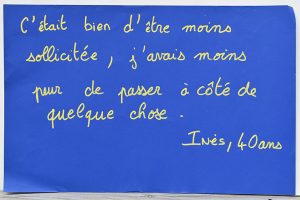 C'était bien d'être moins
sollicitée, j'avais moins
peur de passer à côté de
quelque chose.
Inès, 40ans